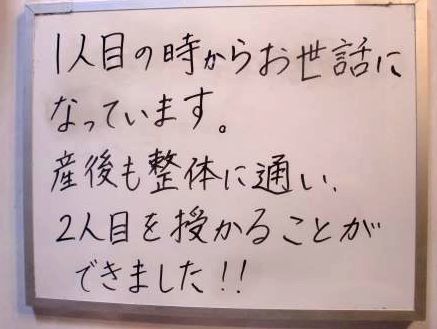 1人目の時からお世話に
なっています。
産後も整体に通い、
2人目を授かることが
できました!!